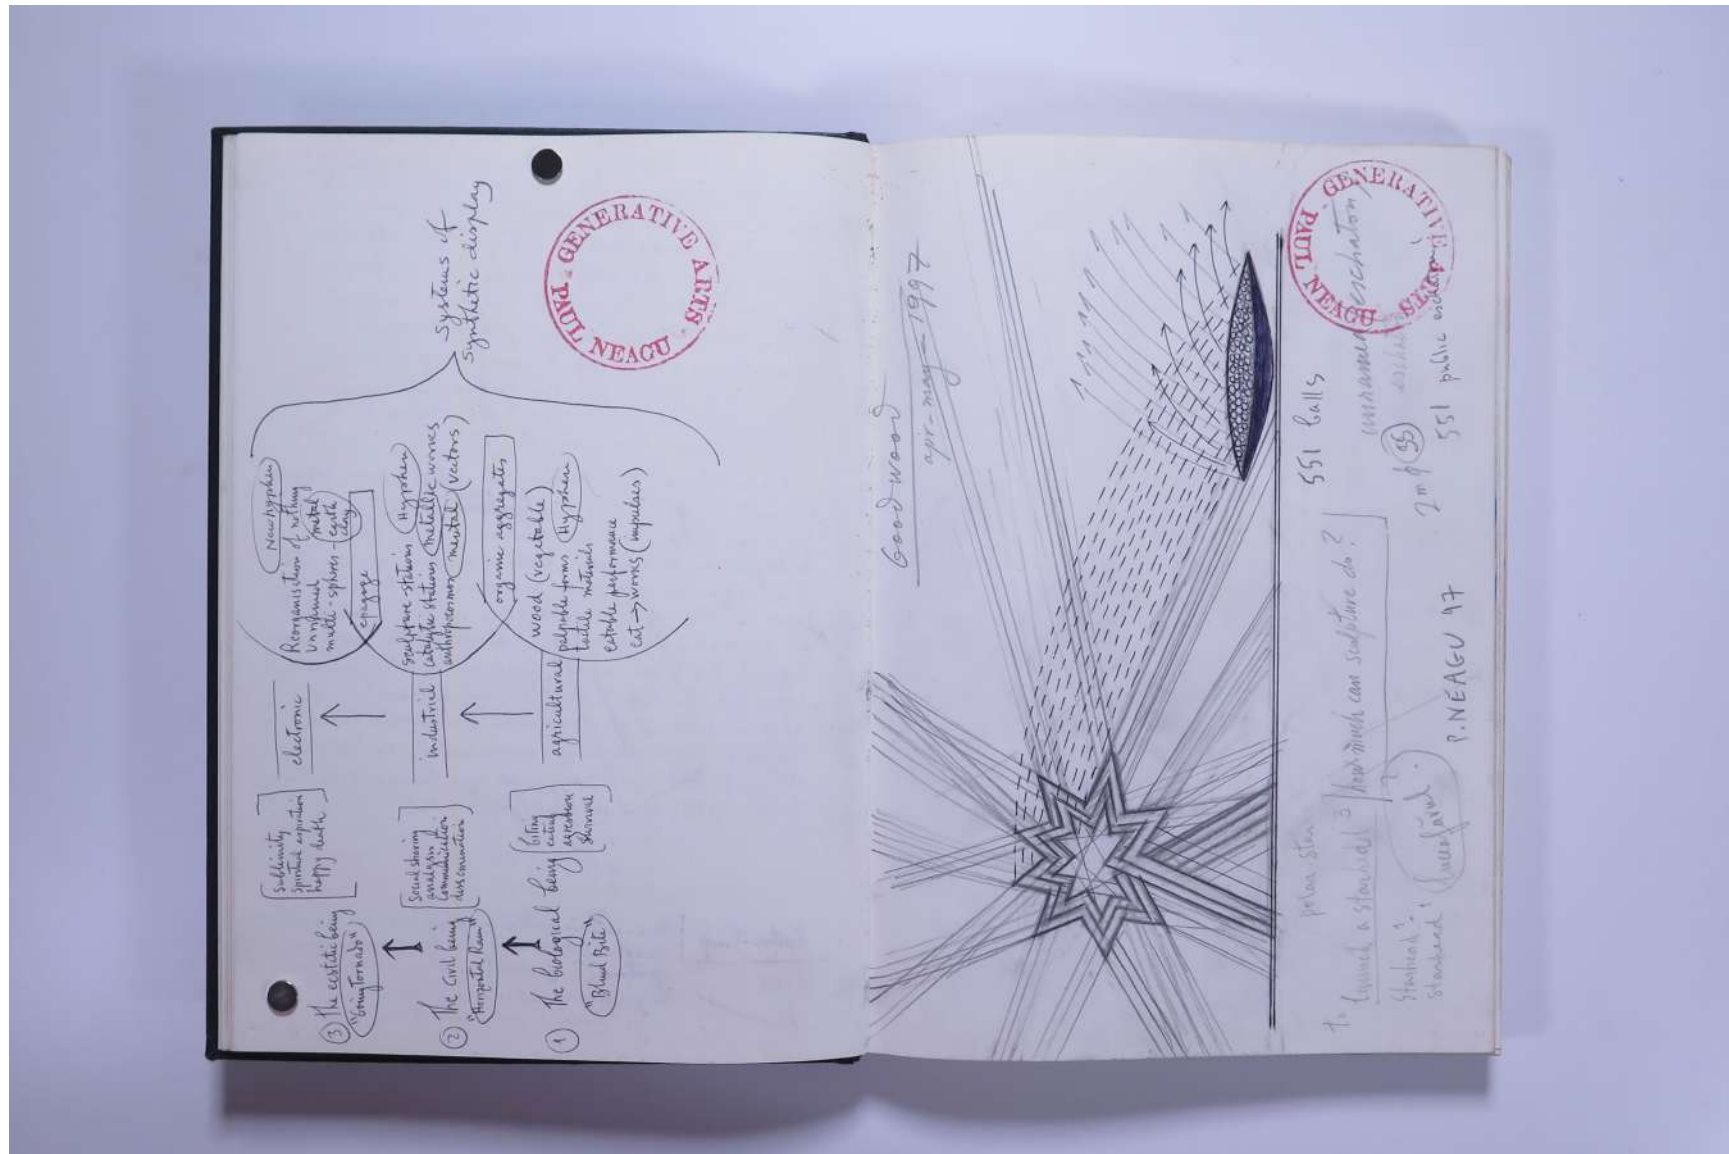 ③ The ecstatic being
"Going Tornado"
[Sublimity
spiritual aspiration
happy death]
electronic
Neohyphen
Reorganisation of nothing
unnamed metal
multi-spheres - earth
clay
epagoge
② The civil being
"Horizontal Rain"
[Social sharing
analysis
communication
industrial
sculpture-stations Hyphen
catalytic stations metallic works
anthropocosmos mental (vectors)
organic aggregates
① The biological being
"Blind Bite"
[biting
eating
agression
survival
agricultural
wood (vegetable)
palpable forms Hyphen
tactile materials
eatable performance
eat → works (impulses)
Systems of
synthetic display
PAUL NEAGU · GENERATIVE ARTS ·
Goodwood
apr-may 1997
PAUL NEAGU GENERATIVE ARTS
551 balls
unnamed eschaton
polar star
to launch a starhead
how much can sculpture do?
2m ⌀
starhead
starhead
551 public
P. NEAGU 97